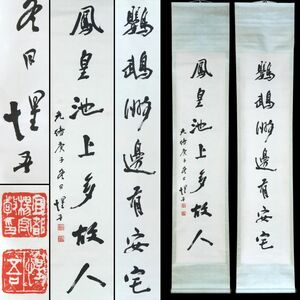 鸚鵡洲邊有安宅
鳳皇池上多故人
光緒庚子冬日 惺吾
鸚鵡洲邊有安宅
鳳皇池上多故人
光緒庚子冬日 惺吾
冬日惺吾
宜都楊守敬印
惺吾